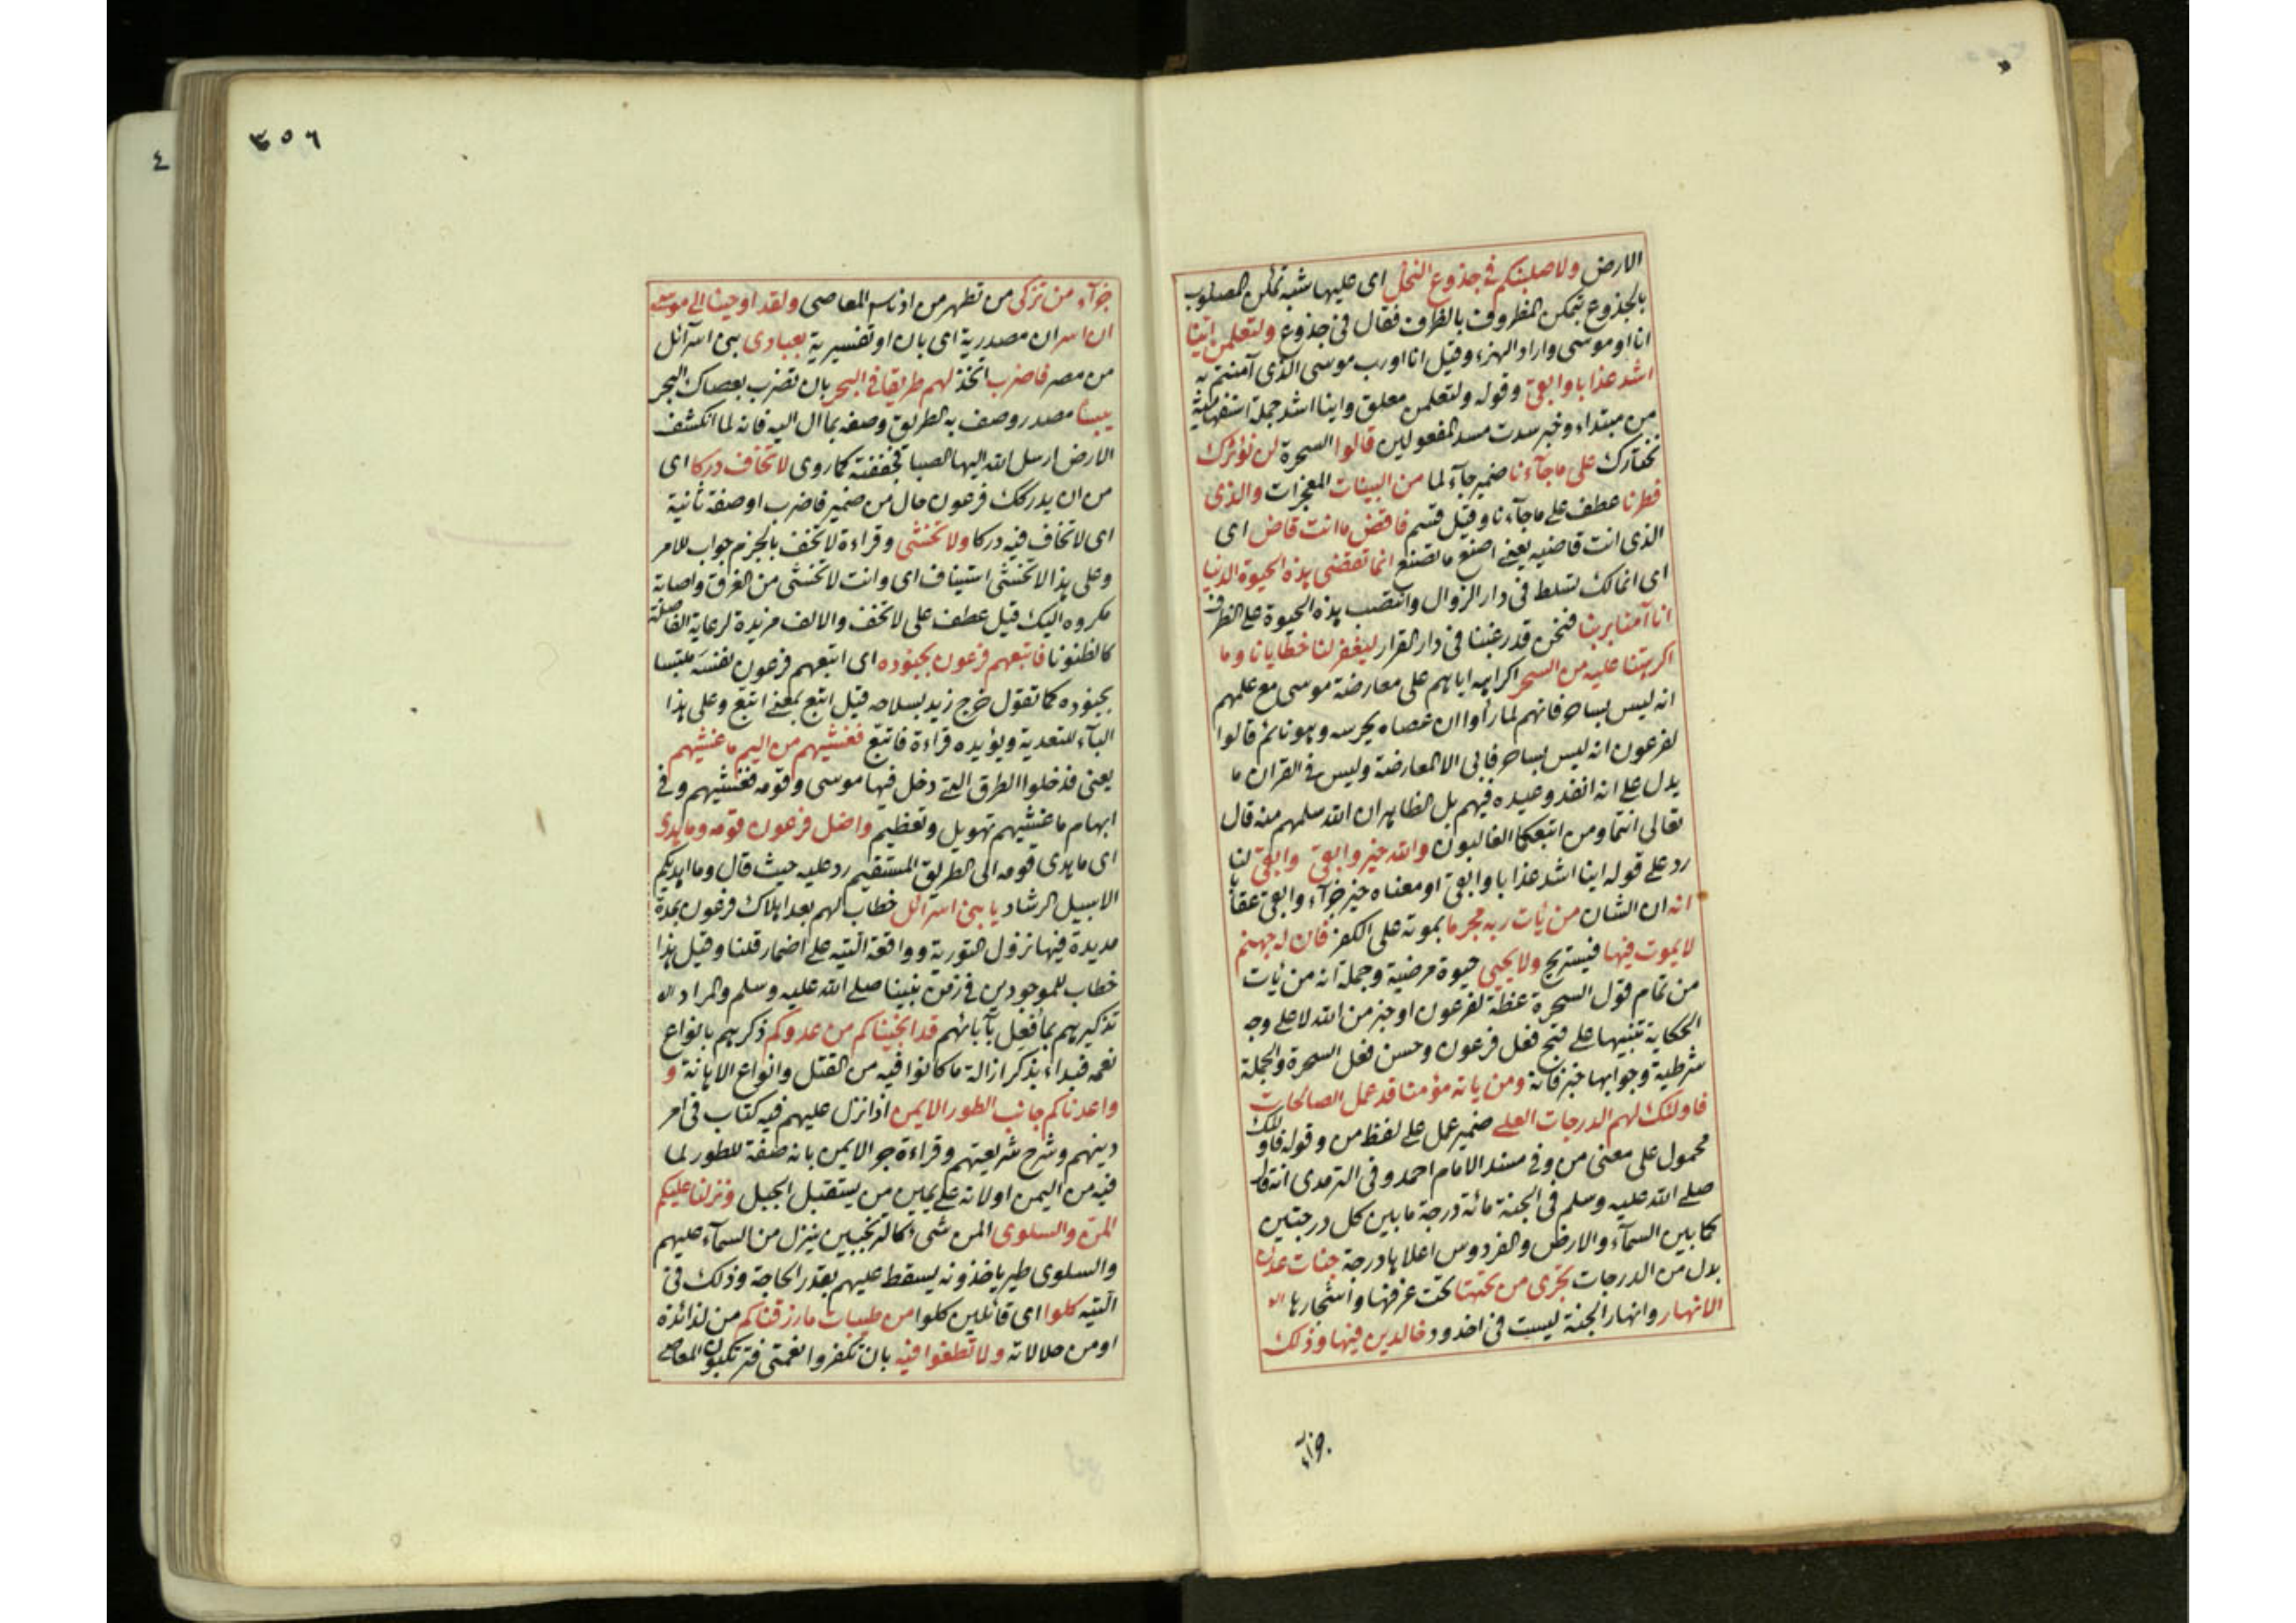 الارض ولاصلبنكم فى جذوع النخل اى عليها شبه تمكن المصلوب
بالجذوع بتمكن المظروف بالظرف فقال فى جذوع ولتعلمن اينا
انا او موسى واراد الهزء وقيل انا او رب موسى الذى آمنتم به
اشد عذابا وابقى وقوله ولتعلمن معلق واينا اشد جملة استفهامية
من مبتداء وخبر سدت مسد المفعولين قالوا السحرة لن نؤثرك
نختارك على ما جآءنا ضمير جآء لما من البينات المعجزات والذى
فطرنا عطف على ما جآءنا وقيل قسم فاقض ما انت قاض اى
الذى انت قاضيه يعنى اصنع ما تصنع انما تقضى هذه الحيوة الدنيا
اى انما لك تسلط فى دار الزوال وانتصب هذه الحيوة على الظرف
انا آمنا بربنا فنحن قد رغبنا فى دار القرار ليغفر لنا خطايانا وما
اكرهتنا عليه من السحر اكراهه اياهم على معارضة موسى مع علمهم
انه ليس بساحر فانهم لما رأوا ان عصاه يحرسه وهو نائم قالوا
لفرعون انه ليس بساحر فابى الا المعارضة وليس فى القران ما
يدل على انه انفذ وعيده فيهم بل الظاهر ان الله سلمهم منه قال
تعالى انتما ومن اتبعكما الغالبون والله خير وابقى وابقى لنا
رد على قوله اينا اشد عذابا وابقى او معناه خير جزآء وابقى عقابا
انه ان الشان من يات ربه مجرما بموته على الكفر فان له جهنم
لا يموت فيها فيستريح ولا يحيى حيوة مرضية وجملة انه من يات
من تمام قول السحرة عظة لفرعون او خبر من الله لا على وجه
الحكاية تنبيها على قبح فعل فرعون وحسن فعل السحرة والجملة
شرطية وجوابها خبر فانه ومن ياته مؤمنا قد عمل الصالحات
فاولئك لهم الدرجات العلى ضمير عمل على لفظ من وقوله فاولئك
محمول على معنى من وفى مسند الامام احمد وفى الترمدى انه قال
صلى الله عليه وسلم فى الجنة مائة درجة ما بين كل درجتين
كما بين السمآء والارض والفردوس اعلاها درجة جنات عدن
بدل من الدرجات تجرى من تحتها تحت غرفها واشجارها
الانهار وانهار الجنة ليست فى اخدود خالدين فيها وذلك
جزآء
٣٥٦
جزآء من تزكى من تطهر من ادناس المعاصى ولقد اوحينا الى موسى
ان اسر ان مصدرية اى بان او تفسيرية بعبادى بنى اسرآئل
من مصر فاضرب اتخذ لهم طريقا فى البحر بان تضرب بعصاك البحر
يبسا مصدر وصف به الطريق وصفه بما ال اليه فانه لما انكشف
الارض ارسل الله اليها الصبا فجففته كما روى لا تخاف دركا اى
من ان يدركك فرعون حال من ضمير فاضرب او صفة ثانية
اى لا تخاف فيه دركا ولا تخشى وقراءة لا تخف بالجزم جواب للامر
وعلى هذا لا تخشى استيناف اى وانت لا تخشى من الغرق واصابة
مكروه اليك قيل عطف على لا تخف والالف مزيدة لرعاية الفاصلة
كالظنونا فاتبعهم فرعون بجنوده اى اتبعهم فرعون نفسه ملتبسا
بجنوده كما تقول خرج زيد بسلاحه قيل اتبع بمعنى اتبع وعلى هذا
البآء للتعدية ويؤيده قراءة فاتبع فغشيهم من اليم ما غشيهم
يعنى فدخلوا الطرق التى دخل فيها موسى وقومه فغشيهم وفى
ابهام ما غشيهم تهويل وتعظيم واضل فرعون قومه وما هدى
اى ما هدى قومه الى الطريق المستقيم رد عليه حيث قال وما اهديكم
الا سبيل الرشاد يا بنى اسرائل خطاب لهم بعد اهلاك فرعون بمدة
مديدة فيها نزول التورية وواقعة التيه على اضمار قلنا وقيل هذا
خطاب للموجودين فى زمن نبينا صلى الله عليه وسلم والمراد
تذكيرهم بما فعل بآبائهم قد انجيناكم من عدوكم ذكرهم بانواع
نعمه فبداء بذكر ازالة ما كانوا فيه من القتل وانواع الاهانة و
واعدناكم جانب الطور الايمن اذ انزل عليهم فيه كتاب فى امر
دينهم وشرح شريعتهم وقراءة جر الايمن بانه صفة للطور لما
فيه من اليمن او لانه على يمين من يستقبل الجبل ونزلنا عليكم
المن والسلوى المن شىء كالترنجبين ينزل من السمآء عليهم
والسلوى طير ياخذونه يسقط عليهم بقدر الحاجة وذلك فى
التيه كلوا اى قائلين كلوا من طيبات ما رزقناكم من لذائذه
او من حلالاته ولا تطغوا فيه بان تكفروا نعمتى فترتكبون المعاصى